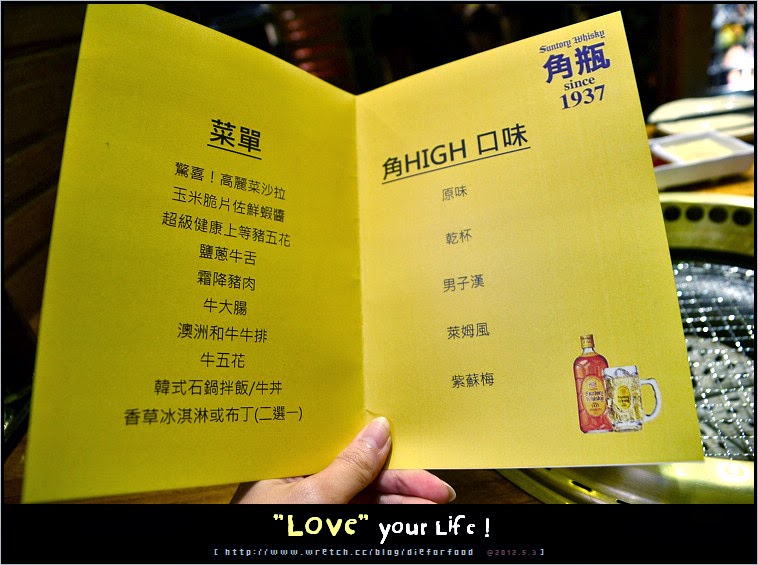 菜單
驚喜！高麗菜沙拉
玉米脆片佐鮮蝦醬
超級健康上等豬五花
鹽蔥牛舌
霜降豬肉
牛大腸
澳洲和牛牛排
牛五花
韓式石鍋拌飯/牛丼
香草冰淇淋或布丁(二選一)
Suntory Whisky
角瓶
since
1937
角HIGH 口味
原味
乾杯
男子漢
萊姆風
紫蘇梅
Suntory Whisky
"Love" your Life !
[ http://www.wretch.cc/blog/dieforfood @2012.5.3 ]